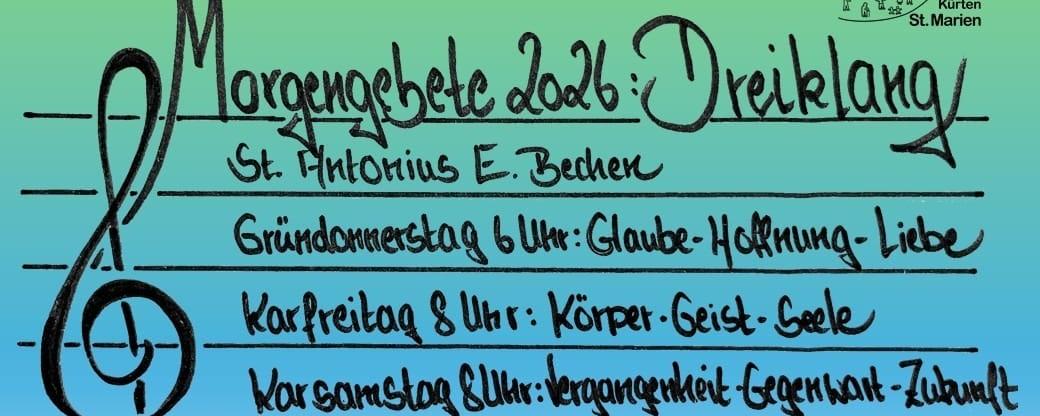 Kürten
St. Marien
Morgengebete 2026: Dreiklang
St. Antonius E. Bechen
Gründonnerstag 6 Uhr: Glaube - Hoffnung - Liebe
Karfreitag 8 Uhr: Körper - Geist - Seele
Karsamstag 8 Uhr: Vergangenheit - Gegenwart - Zukunft